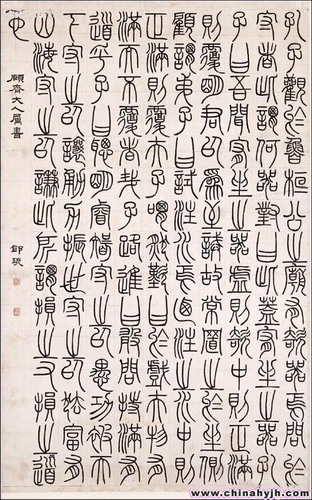 孔子觀於魯桓公之廟有欹器焉問於
守者此謂何器對曰此蓋宥坐之器孔
子曰吾聞宥坐之器虛則欹中則正滿
則覆明君以為至誡故常置之於坐側
顧謂弟子曰試注水焉乃注之水中則
正滿則覆夫子喟然歎曰於戲夫物有
滿而不覆者哉子路進曰敢問持滿有
道乎子曰聰明睿智守之以愚功被天
下守之以讓勇力振世守之以怯富有
四海守之以謙此所謂損之又損之道
也
顧齋大人屬書
邵瑛
www.chinahyjh.com